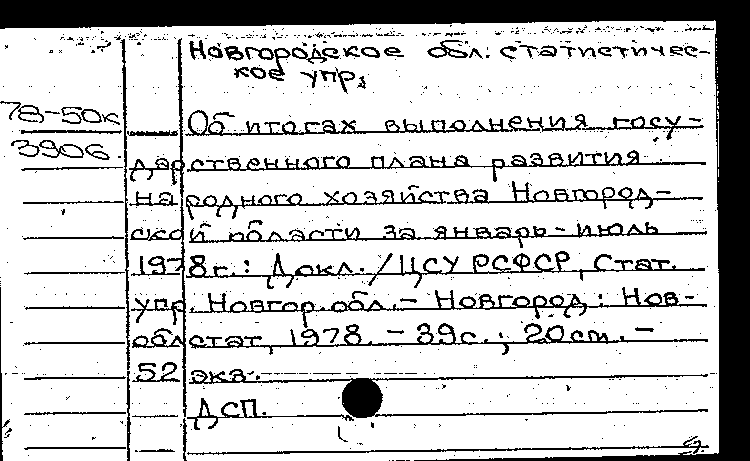 Новгородское обл. статистичес-
кое упр.
78-50к
Об итогах выполнения госу-
3906.
дарственного плана развития
народного хозяйства Новгород-
ской области за январь-июль
1978г.: Докл. /ЦСУ РСФСР, Стат.
упр. Новгор. обл. - Новгород: Нов-
облстат, 1978. - 39с.; 20см. -
52 экз.
ДСП.